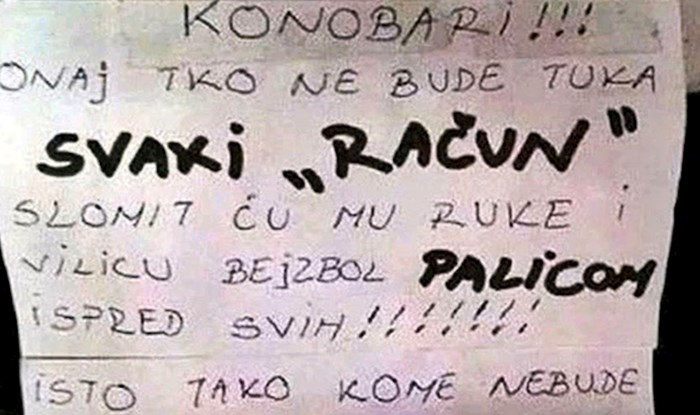 KONOBARI!!!
ONAj TKO NE BUDE TUKA
SVAKi „RAČUN"
SLOMIT ĆU MU RUKE i
ViLiCU BEjZBOL PALiCOM
iSPRED SViH!!!!!!!!
iSTO TAKO KOME NEBUDE